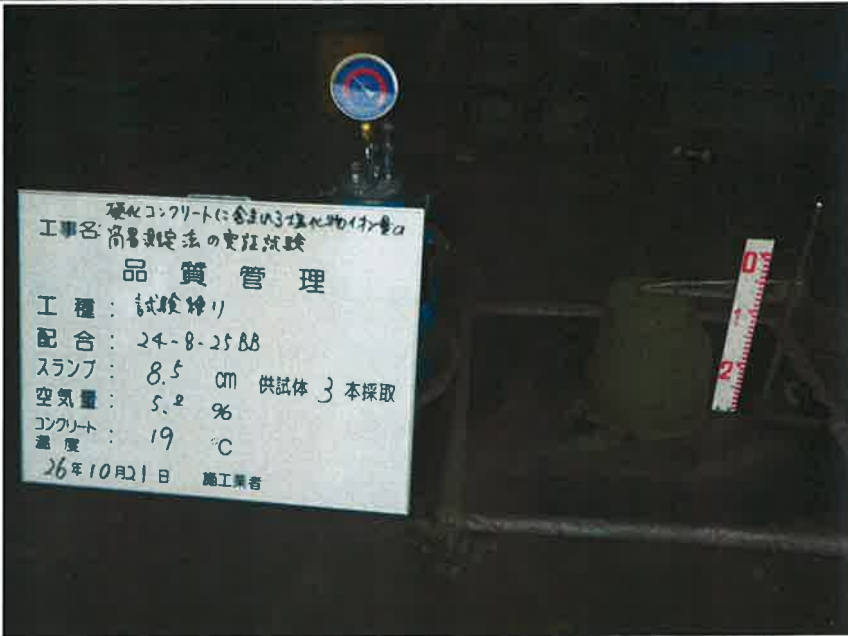 硬化コンクリートに含まれる塩化物イオン量の
工事名: 簡易測定法の実証試験
品質管理
工種: 試験練り
配合: 24-8-25BB
スランプ: 8.5 cm 供試体 3 本採取
空気量: 5.2 %
コンクリート温度: 19 ℃
26年10月21日 施工業者
0
1
2